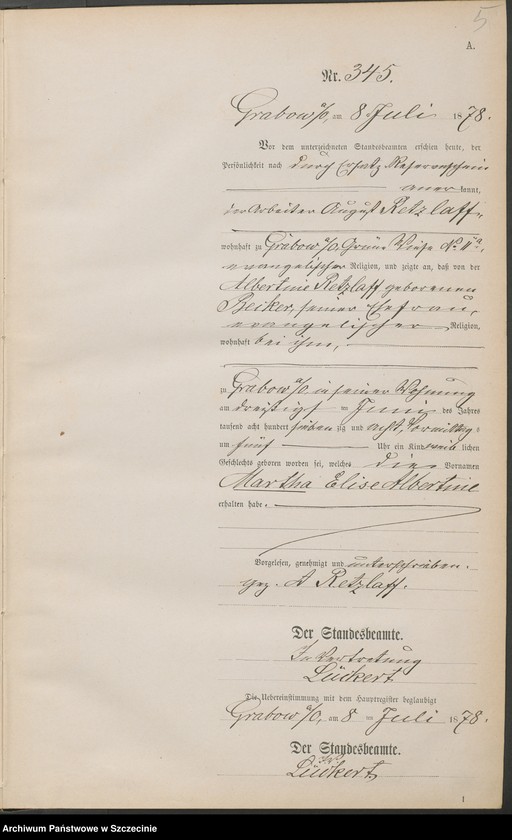 5
A.
Nr. 345.
Grabow a/O, am 8 Juli 1878.
Vor dem unterzeichneten Standesbeamten erschien heute, der
Persönlichkeit nach durch Ersatz Reserveschein
anerkannt,
der Arbeiter August Retzlaff,
wohnhaft zu Grabow a/O, Grüne Wiese No 11a,
evangelischer Religion, und zeigte an, daß von der
Albertine Retzlaff geborenen
Becker, seiner Ehefrau,
evangelischer Religion,
wohnhaft bei ihm,
zu Grabow a/O, in seiner Wohnung
am dreißigst = Juni des Jahres
tausend acht hundert siebenzig und acht, Vormittags
um fünf Uhr ein Kind weiblichen
Geschlechts geboren worden sei, welches die Vornamen
Martha Elise Albertine
erhalten habe.
Vorgelesen, genehmigt und unterschrieben.
gez. A Retzlaff.
Der Standesbeamte.
In Vertretung
Lückert
Die Uebereinstimmung mit dem Hauptregister beglaubigt
Grabow a/O, am 8 = Juli 1878.
Der Standesbeamte.
Lückert
Archiwum Państwowe w Szczecinie